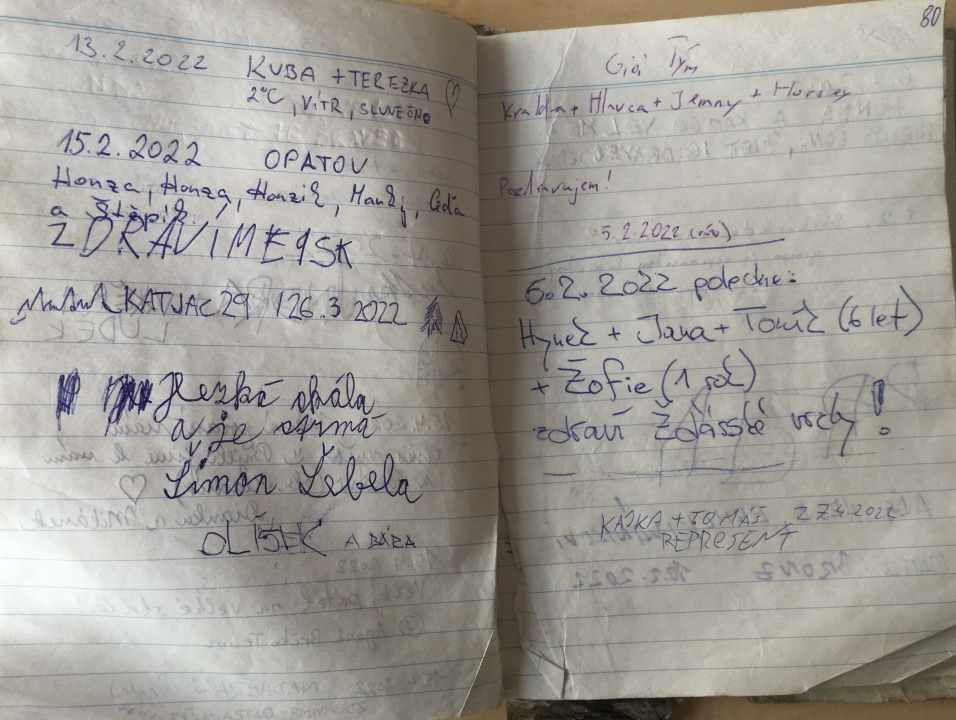 13.2.2022 KUBA + TEREZKA
2°C, VÍTR, SLUNEČNO
15.2.2022 OPATOV
Honza, Honza, Honzik,
a Štěpík
ZDRAVÍME
KATJAC 29 / 26.3 2022
Hezká skála
a je strmá
Šimon Lebela
OLÍŠEK A BÁRA
80
Tým
+ Hlavca + Jemny +
Pozdravujem!
5.2.2022
6.2.2022 poledne:
Hynek + Jana + Tomík (6 let)
+ Žofie (1 rok)
zdraví Žďárské vrchy!
KAJKA + TOMÁŠ 27.4.2022
REPRESENT